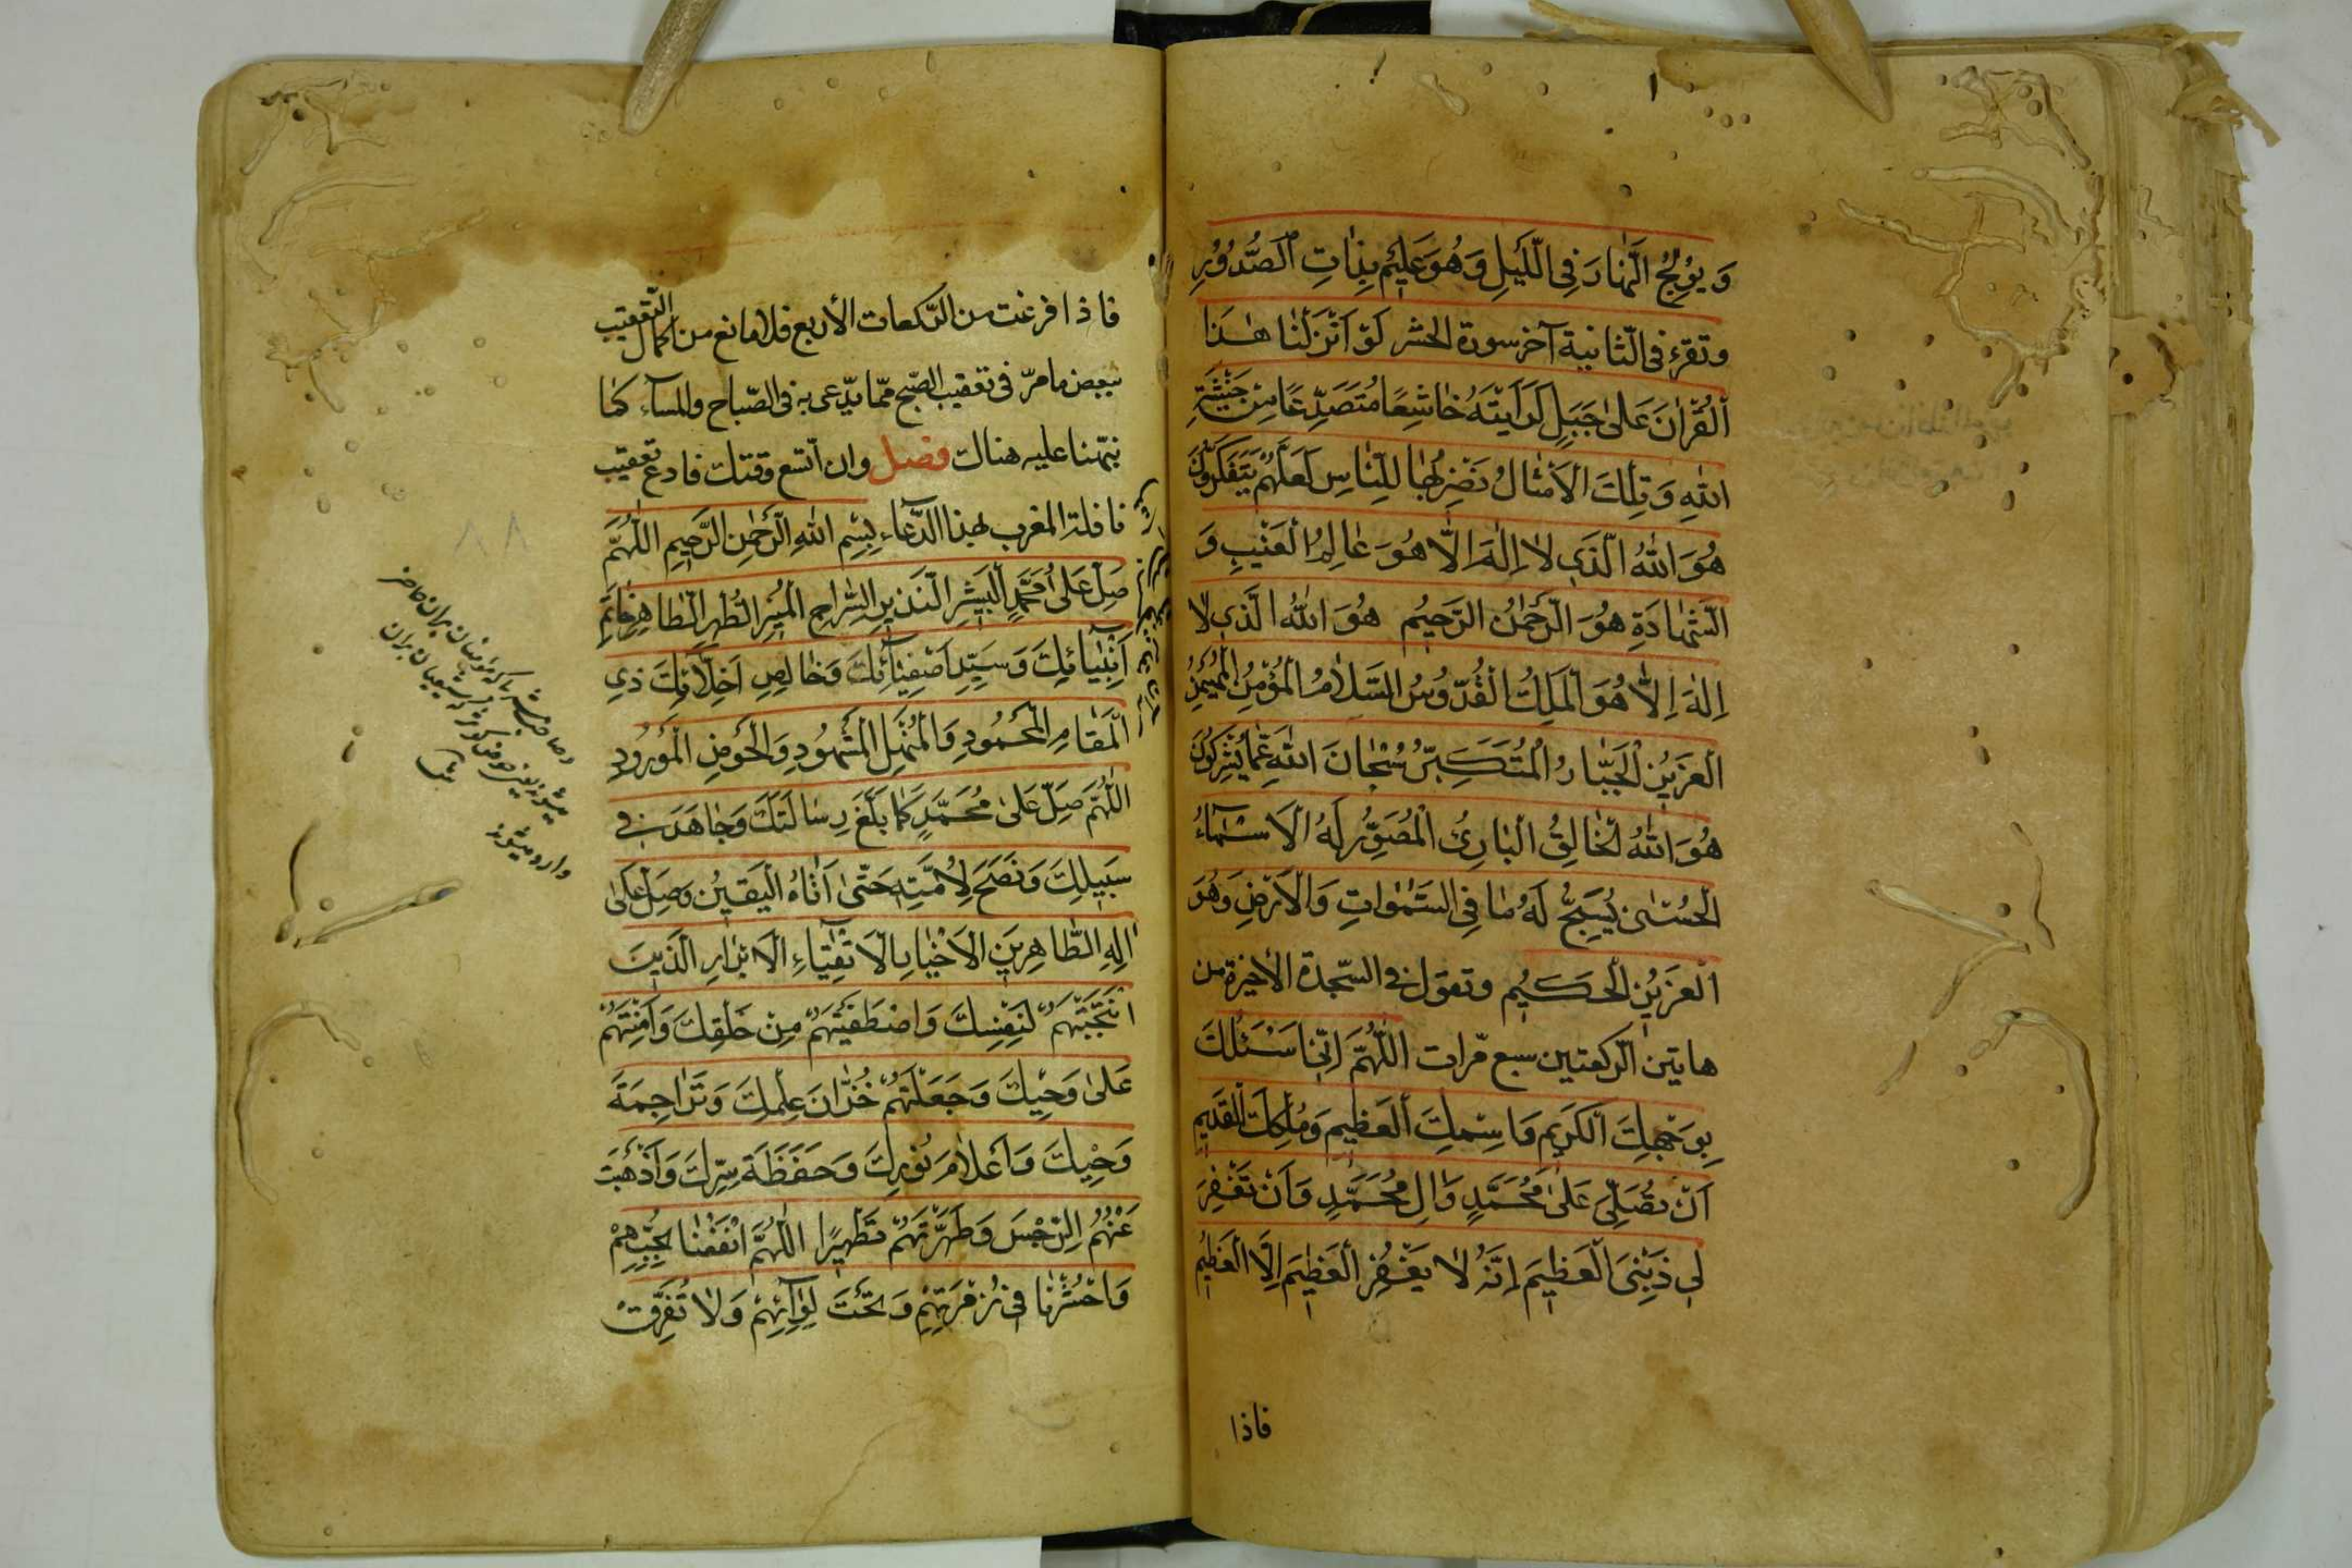 وَ يُوْلِجُ النَّهٰارَ فِى اللَّيْلِ وَ هُوَ عَلِيْمٌ بِذٰاتِ الصُّدُوْرِ
وتقرء فى الثّانية آخر سورة الحشر لَوْ اَنْزَلْنٰا هٰذَا
الْقُرْاٰنَ عَلىٰ جَبَلٍ لَرَاَيْتَهُ خٰاشِعًا مُتَصَدِّعًا مِنْ خَشْيَةِ
اللهِ وَ تِلْكَ الْاَمْثٰالُ نَضْرِبُهٰا لِلنّٰاسِ لَعَلَّهُمْ يَتَفَكَّرُوْنَ
هُوَ اللهُ الَّذِى لاٰ اِلٰهَ اِلّٰا هُوَ عٰالِمُ الْغَيْبِ وَ
الشَّهٰادَةِ هُوَ الرَّحْمٰنُ الرَّحِيْمُ هُوَ اللهُ الَّذِى لاٰ
اِلٰهَ اِلّٰا هُوَ الْمَلِكُ الْقُدُّوْسُ السَّلاٰمُ الْمُؤْمِنُ الْمُهَيْمِنُ
الْعَزِيْزُ الْجَبّٰارُ الْمُتَكَبِّرُ سُبْحٰانَ اللهِ عَمّٰا يُشْرِكُوْنَ
هُوَ اللهُ الْخٰالِقُ الْبٰارِئُ الْمُصَوِّرُ لَهُ الْاَسْمٰآءُ
الْحُسْنىٰ يُسَبِّحُ لَهُ مٰا فِى السَّمٰوٰاتِ وَالْاَرْضِ وَهُوَ
الْعَزِيْزُ الْحَكِيْمُ وتقول فى السّجدة الأخيرة من
هاتين الرّكعتين سبع مّرات اَللّٰهُمَّ اِنّى اَسْئَلُكَ
بِوَجْهِكَ الْكَرِيْمِ وَاسْمِكَ الْعَظِيْمِ وَمُلْكِكَ الْقَدِيْمِ
اَنْ تُصَلِّىَ عَلىٰ مُحَمَّدٍ وَاٰلِ مُحَمَّدٍ وَاَنْ تَغْفِرَ
لِى ذَنْبِىَ الْعَظِيْمَ اِنَّهُ لاٰ يَغْفِرُ الْعَظِيْمَ اِلَّا الْعَظِيْمُ
فاذا
فاذا فرغت من الرّكعات الأربع فلا مانع من اكمال التّعقيب
ببعض ما مرّ فى تعقيب الصّبح ممّا يدّعى به فى الصّباح والمسآء كما
نبّهنا عليه هناك فصل وان اتّسع وقتك فادع تعقيب
نافلة المغرب بهذا الدّعاء بِسْمِ اللهِ الرَّحْمٰنِ الرَّحِيمِ اللّٰهُمَّ
صَلِّ عَلىٰ مُحَمَّدٍ الْبَشِيْرِ النَّذِيْرِ السِّرٰاجِ الْمُنِيْرِ الطُّهْرِ الطّٰاهِرِ خٰاتَمِ
اَنْبِيٰائِكَ وَ سَيِّدِ اَصْفِيٰآئِكَ وَخٰالِصِ اَخِلّٰائِكَ ذِى
الْمَقٰامِ الْمَحْمُوْدِ وَالْمَنْهَلِ الْمَشْهُوْدِ وَالْحَوْضِ الْمَوْرُوْدِ
اللّٰهُمَّ صَلِّ عَلىٰ مُحَمَّدٍ كَمٰا بَلَّغَ رِسٰالَتَكَ وَجٰاهَدَ فى
سَبِيْلِكَ وَنَصَحَ لِاُمَّتِهِ حَتّىٰ اَتٰاهُ الْيَقِيْنُ وَصَلِّ عَلىٰ
اٰلِهِ الطّٰاهِرِيْنَ الْاَخْيٰارِ الْاَتْقِيٰاءِ الْاَبْرٰارِ الَّذِيْنَ
انْتَجَبْتَهُمْ لِنَفْسِكَ وَاصْطَفَيْتَهُمْ مِنْ خَلْقِكَ وَاَمِنْتَهُمْ
عَلىٰ وَحْيِكَ وَجَعَلْتَهُمْ خُزّٰانَ عِلْمِكَ وَتَرٰاجِمَةَ
وَحْيِكَ وَاَعْلاٰمَ نُوْرِكَ وَحَفَظَةَ سِرِّكَ وَاَذْهَبْتَ
عَنْهُمُ الرِّجْسَ وَطَهَّرْتَهُمْ تَطْهِيْرًا اللّٰهُمَّ انْفَعْنٰا بِحُبِّهِمْ
وَاحْشُرْنٰا فِى زُمْرَتِهِمْ وَتَحْتَ لِوٰآئِهِمْ وَلاٰ تُفَرِّقْ
٨٨